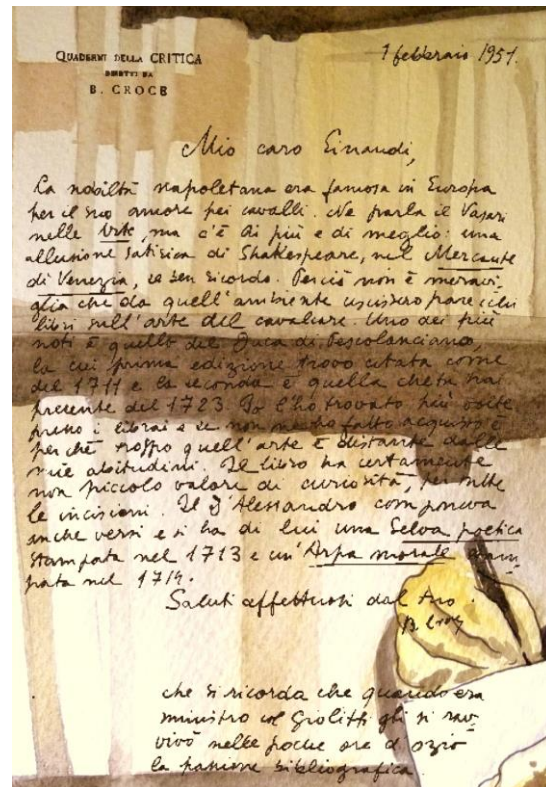 QUADERNI DELLA CRITICA
DIRETTI DA
B. CROCE
1 febbraio 1951.
Mio caro Einaudi,
La nobiltà napoletana era famosa in Europa
per il suo amore pei cavalli. Ne parla il Vasari
nelle Vite, ma c'è di più e di meglio: una
allusione satirica di Shakespeare, nel Mercante
di Venezia, se ben ricordo. Perciò non è meravi-
glia che da quell'ambiente uscissero parecchi
libri sull'arte del cavaliere. Uno dei più
noti è quello del Duca di Pescolanciano,
la cui prima edizione trovo citata come
del 1711 e la seconda è quella che tu hai
presente del 1723. Io l'ho trovato più volte
presso i librai e se non ne ho fatto acquisto è
perché troppo quell'arte è distante dalle
mie abitudini. Il libro ha certamente
non piccolo valore di curiosità, per tutte
le incisioni. Il D'Alessandro componeva
anche versi e si ha di lui una Selva poetica
stampata nel 1713 e un'Arpa morale stam-
pata nel 1714.
Saluti affettuosi dal tuo
B. Croce
che si ricorda che quando era
ministro col Giolitti gli si rav-
vivò nelle poche ore d'ozio
la passione bibliografica.